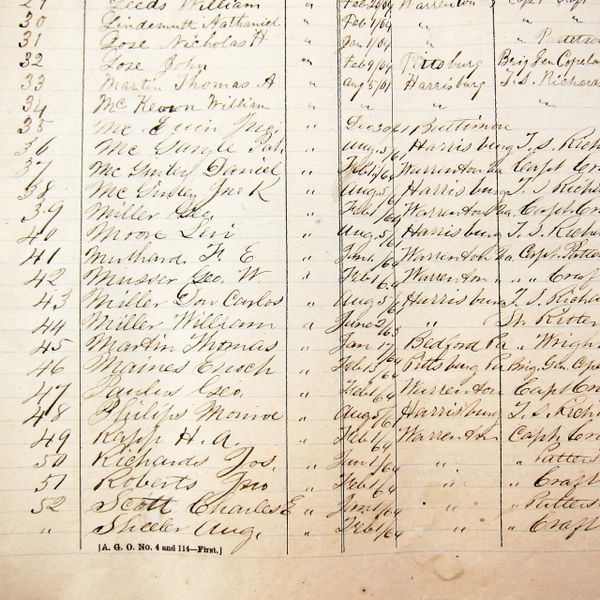 29 Leeds William " Feb 24/64 Warrenton
30 Lindemuth Nathaniel " Feb 1/64 " "
31 Lose Nicholas H " Jan 1/64 "
32 Lose John " Feb 9/64 Pittsburg Brig. Gen Copela
33 Martin Thomas A " Aug 5/61 Harrisburg T. S. Richard
34 McKeown William " " " "
35 Mc " Baltimore
36 Mc Pat. " Aug 5/61 Harrisburg T. S. Rich
37 Mc Daniel " Feb 1/64 Warrenton Va Capt
38 Mc Jno K " Aug 5/61 Harrisburg T. S. Rich
39 Miller Geo. " Feb 1/64 Warrenton Va. Capt. Cr
40 Moore Levi " Aug 5/61 Harrisburg T. S. Richa
41 F. E " Jan 1/64 Warrenton Va Capt. Patters
42 Musser Geo. W. " Feb 1/64 Warrenton " " Craf
43 Miller Don Carlos " Aug 5/61 Harrisburg T. S. Richa
44 Miller William " June 2/63 " St. Ritter
45 Martin Thomas " Jan 1/64 Bedford Pa " Wrigh
46 Maines Enoch " Feb Pittsburg Pa Brig. Gen. Cope
47 Paulus Geo. " Feb 1/64 Warrenton Capt Cr
48 Philips Monroe " Aug 5/61 Harrisburg T. S. Rich
49 Rapp H. A. " Feb 1/64 Warrenton Capt. Cra
50 Richards Jos. " Jan 1/64 " " Patters
51 Roberts Jno " Feb 1/64 " " Craft
52 Scott Charles E " Jan 1/64 " " Patters
" Sheeler Aug. " Feb 1/64 " " Craft
[A. G. O. No. 4 and 114—First.]